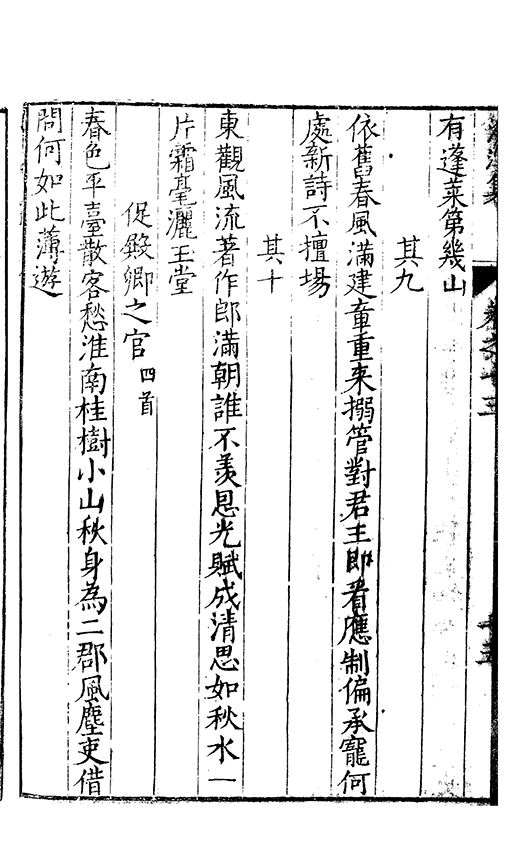 有蓬萊第幾山
其九
依舊春風滿建章重来搦管對君王即看應制偏承寵何
處新詩不擅場
其十
東觀風流著作郎滿朝誰不羨恩光賦成清思如秋水一
片霜毫灑玉堂
促殿卿之官 四首
春色平臺散客愁淮南桂樹小山秋身為二郡風塵吏借
問何如此薄遊